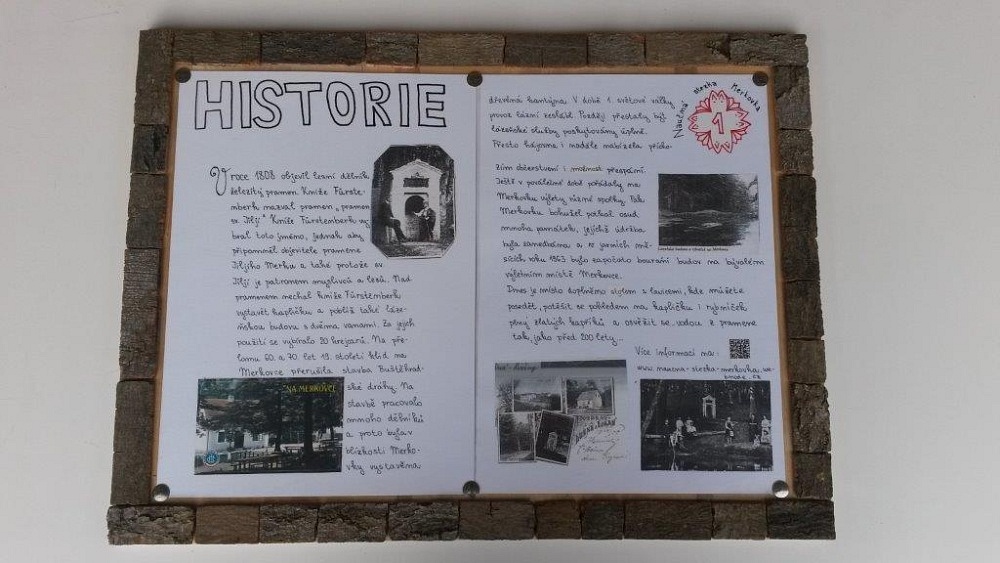 HISTORIE
V roce 1808 objevil lesní dělník
železitý pramen. Kníže Fürste-
nberk nazval pramen „pramen
sv. Jiljí“ Kníže Fürstenberk vy-
bral toto jméno, jednak aby
připomněl objevitele pramene
Jiljího Merku a také protože sv.
Jiljí je patronem myslivců a lesů. Nad
pramenem nechal kníže Fürstenberk
vystavět kapličku a poblíž také láze-
ňskou budovu s dvěma vanami. Za jejich
použití se vybíralo 20 krejcarů. Na pře-
lomu 60. a 70. let 19. století klid na
Merkovce přerušila stavba Buštěhrad-
ské dráhy. Na
stavbě pracovalo
mnoho dělníků
a proto byla v
blízkosti Merko-
vky vystavěna
"NA MERKOVCE"
dřevěná kantýna. V době 1. světové války
provoz lázní zeslábl. Později přestaly být
lázeňské služby poskytovány úplně.
Přesto hájovna i nadále nabízela přícho-
zím občerstvení i možnost přespání.
Ještě v poválečné době pořádaly na
Merkovku výlety různé spolky. Pak
Merkovku bohužel potkal osud
mnoha památek, jejichž údržba
byla zanedbána a v jarních mě-
sících roku 1963 bylo započato bourání budov na bývalém
výletním místě Merkovce.
Dnes je místo doplněno stolem s lavicemi, kde můžete
posedět, potěšit se pohledem na kapličku i rybníček
plný zlatých kapříků a osvěžit se vodou z pramene
tak, jako před 200 lety...
Naučná stezka Merkovka
1
Více informací na:
www.naucna-stezka-merkovka.we
bnode.cz